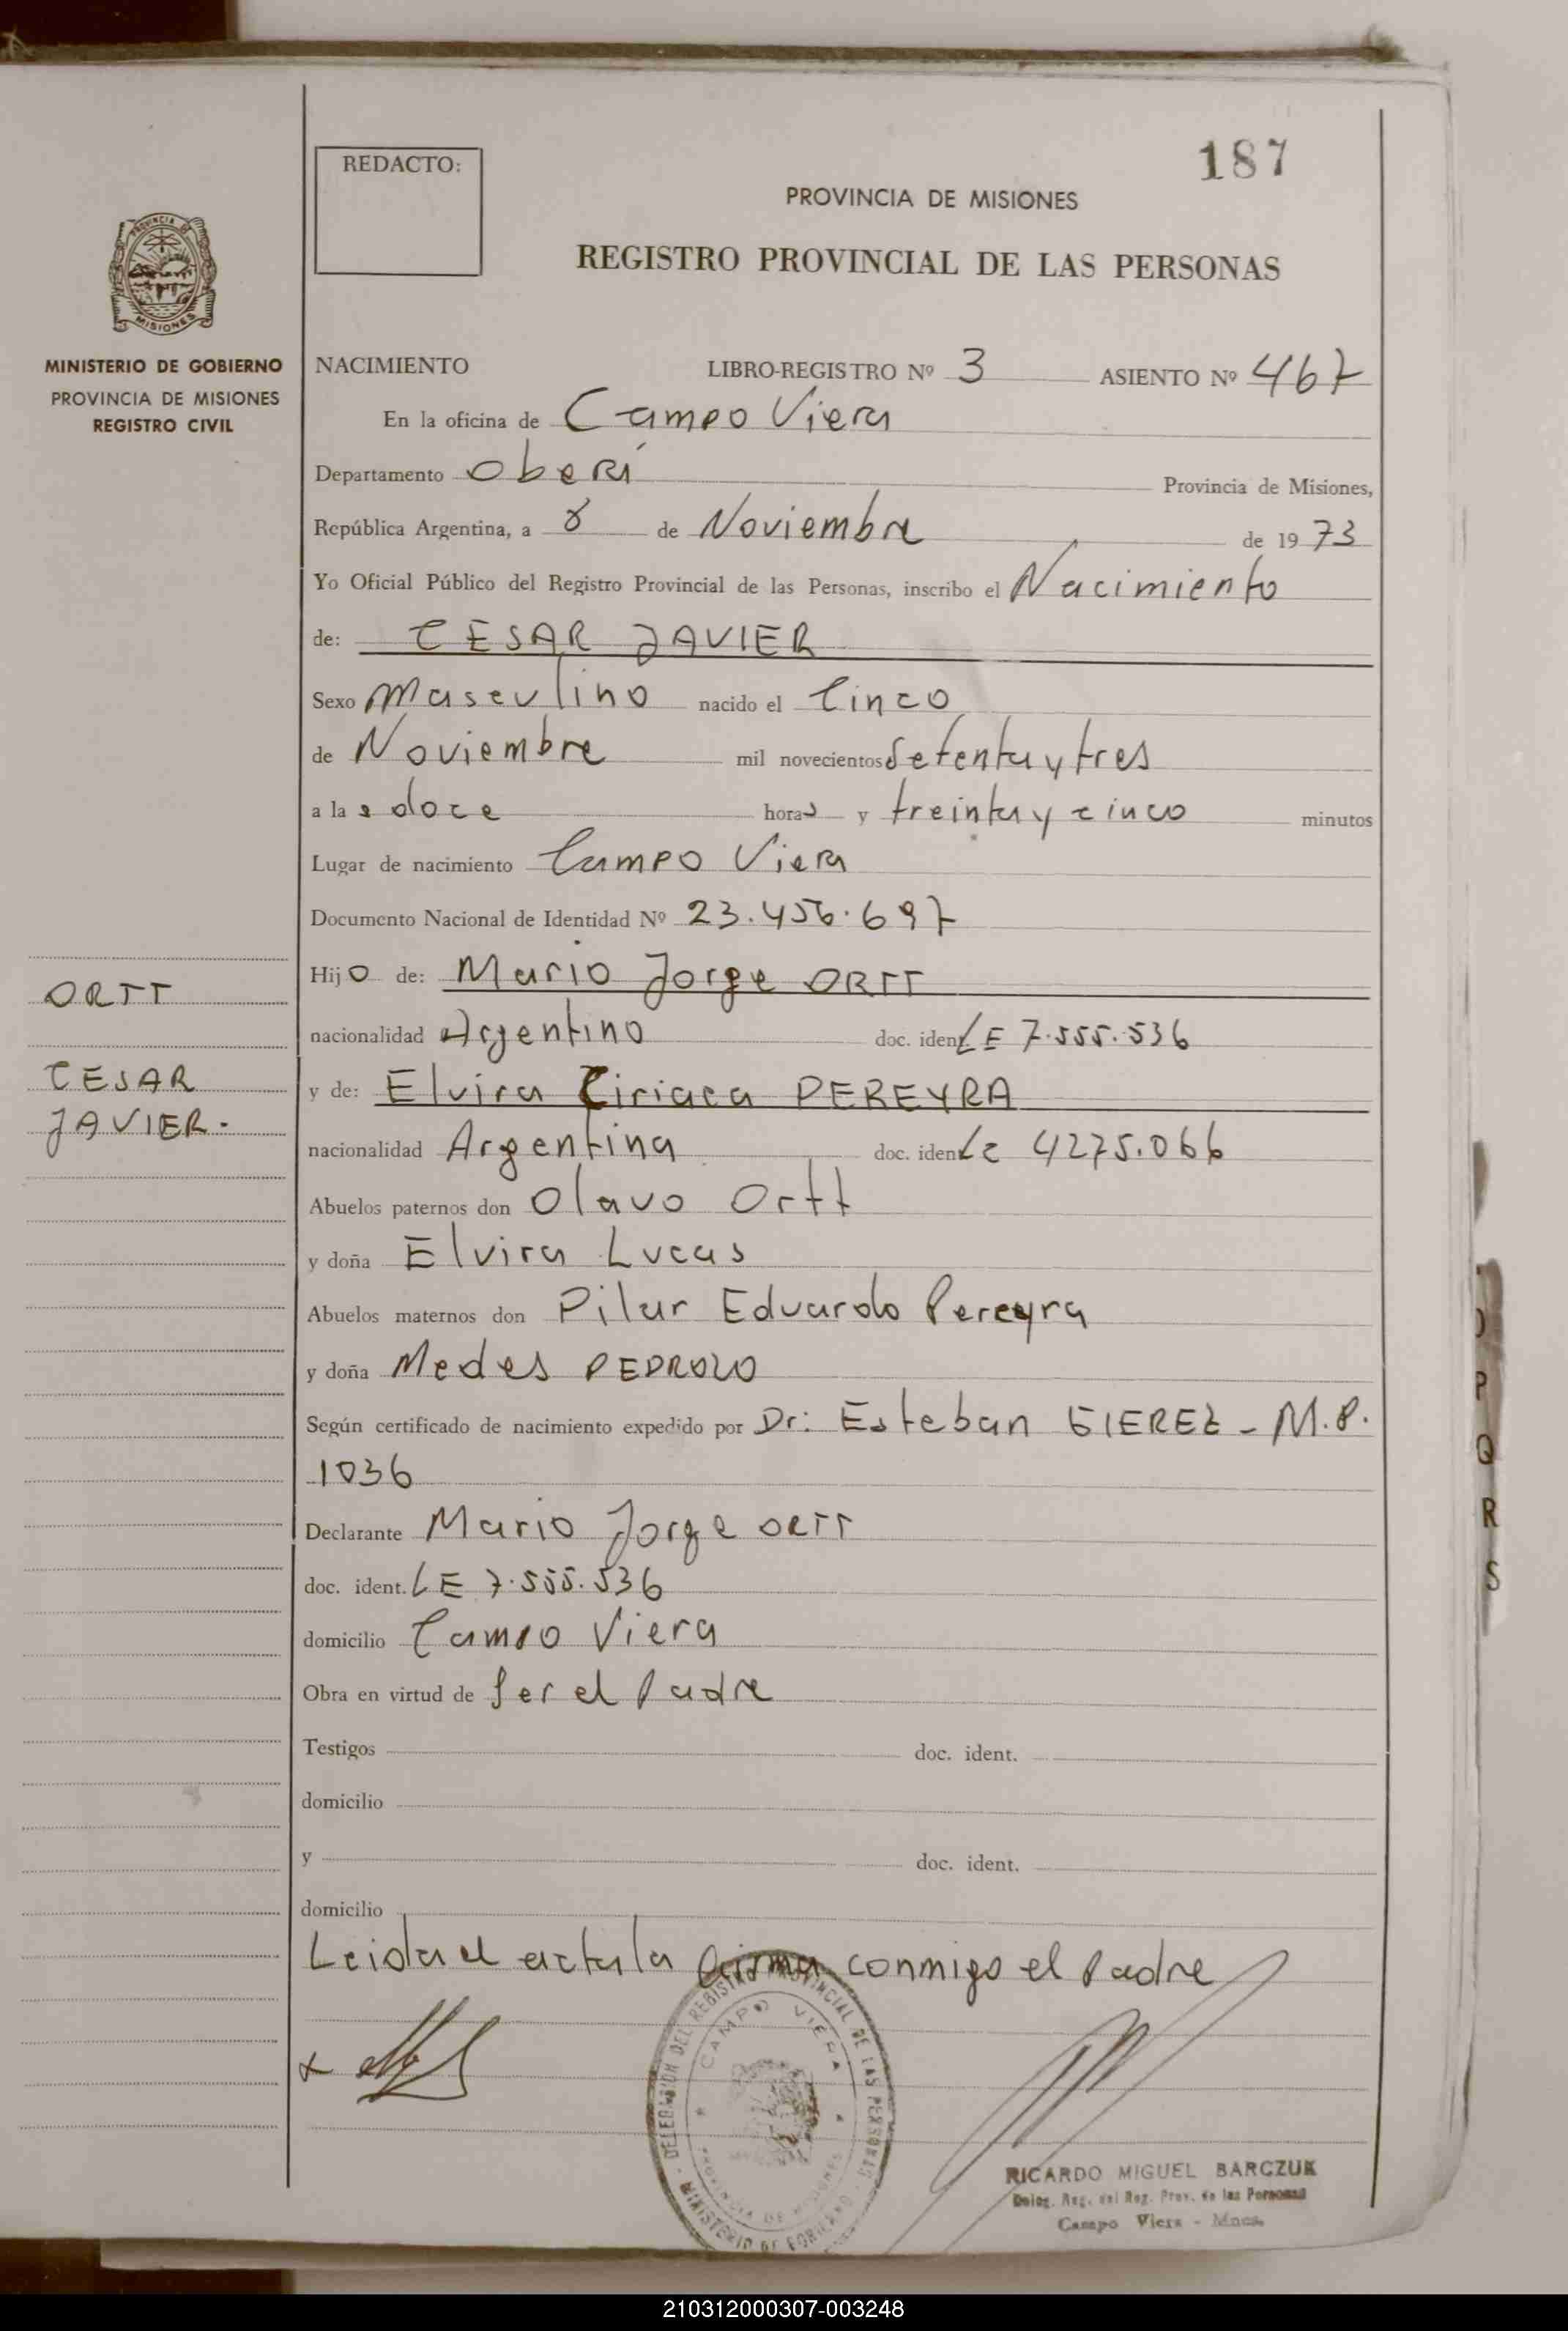 187
REDACTO:
PROVINCIA DE MISIONES
REGISTRO PROVINCIAL DE LAS PERSONAS
MINISTERIO DE GOBIERNO
PROVINCIA DE MISIONES
REGISTRO CIVIL
NACIMIENTO LIBRO-REGISTRO Nº 3 ASIENTO Nº 467
En la oficina de Campo Viera
Departamento Oberá Provincia de Misiones,
República Argentina, a 8 de Noviembre de 1973
Yo Oficial Público del Registro Provincial de las Personas, inscribo el Nacimiento
de: CESAR JAVIER
Sexo Masculino nacido el Cinco
de Noviembre mil novecientos setenta y tres
a las doce horas y treinta y cinco minutos
Lugar de nacimiento Campo Viera
Documento Nacional de Identidad Nº 23.456.697
Hijo de: Mario Jorge ORTT
nacionalidad Argentino doc. ident LE 7.555.536
y de: Elvira Ciriaca PEREYRA
nacionalidad Argentina doc. ident Lc 4275.066
Abuelos paternos don Olavo Ortt
y doña Elvira Lucas
Abuelos maternos don Pilar Eduardo Pereyra
y doña Medes PEDROZO
Según certificado de nacimiento expedido por Dr: Esteban GIEREZ - M.P.
1036
Declarante Mario Jorge ORTT
doc. ident. LE 7.555.536
domicilio Campo Viera
Obra en virtud de Ser el Padre
Testigos doc. ident.
domicilio
y doc. ident.
domicilio
Leida el acta la firma conmigo el Padre
ORTT
CESAR
JAVIER.
DELEGACION DEL REGISTRO PROVINCIAL DE LAS PERSONAS
CAMPO VIERA
PROVINCIA DE MISIONES
MINISTERIO DE GOBIERNO
RICARDO MIGUEL BARCZUK
Deleg. Reg. del Reg. Prov. de las Personas
Campo Viera - Mnes.
P
Q
R
S
210312000307-003248